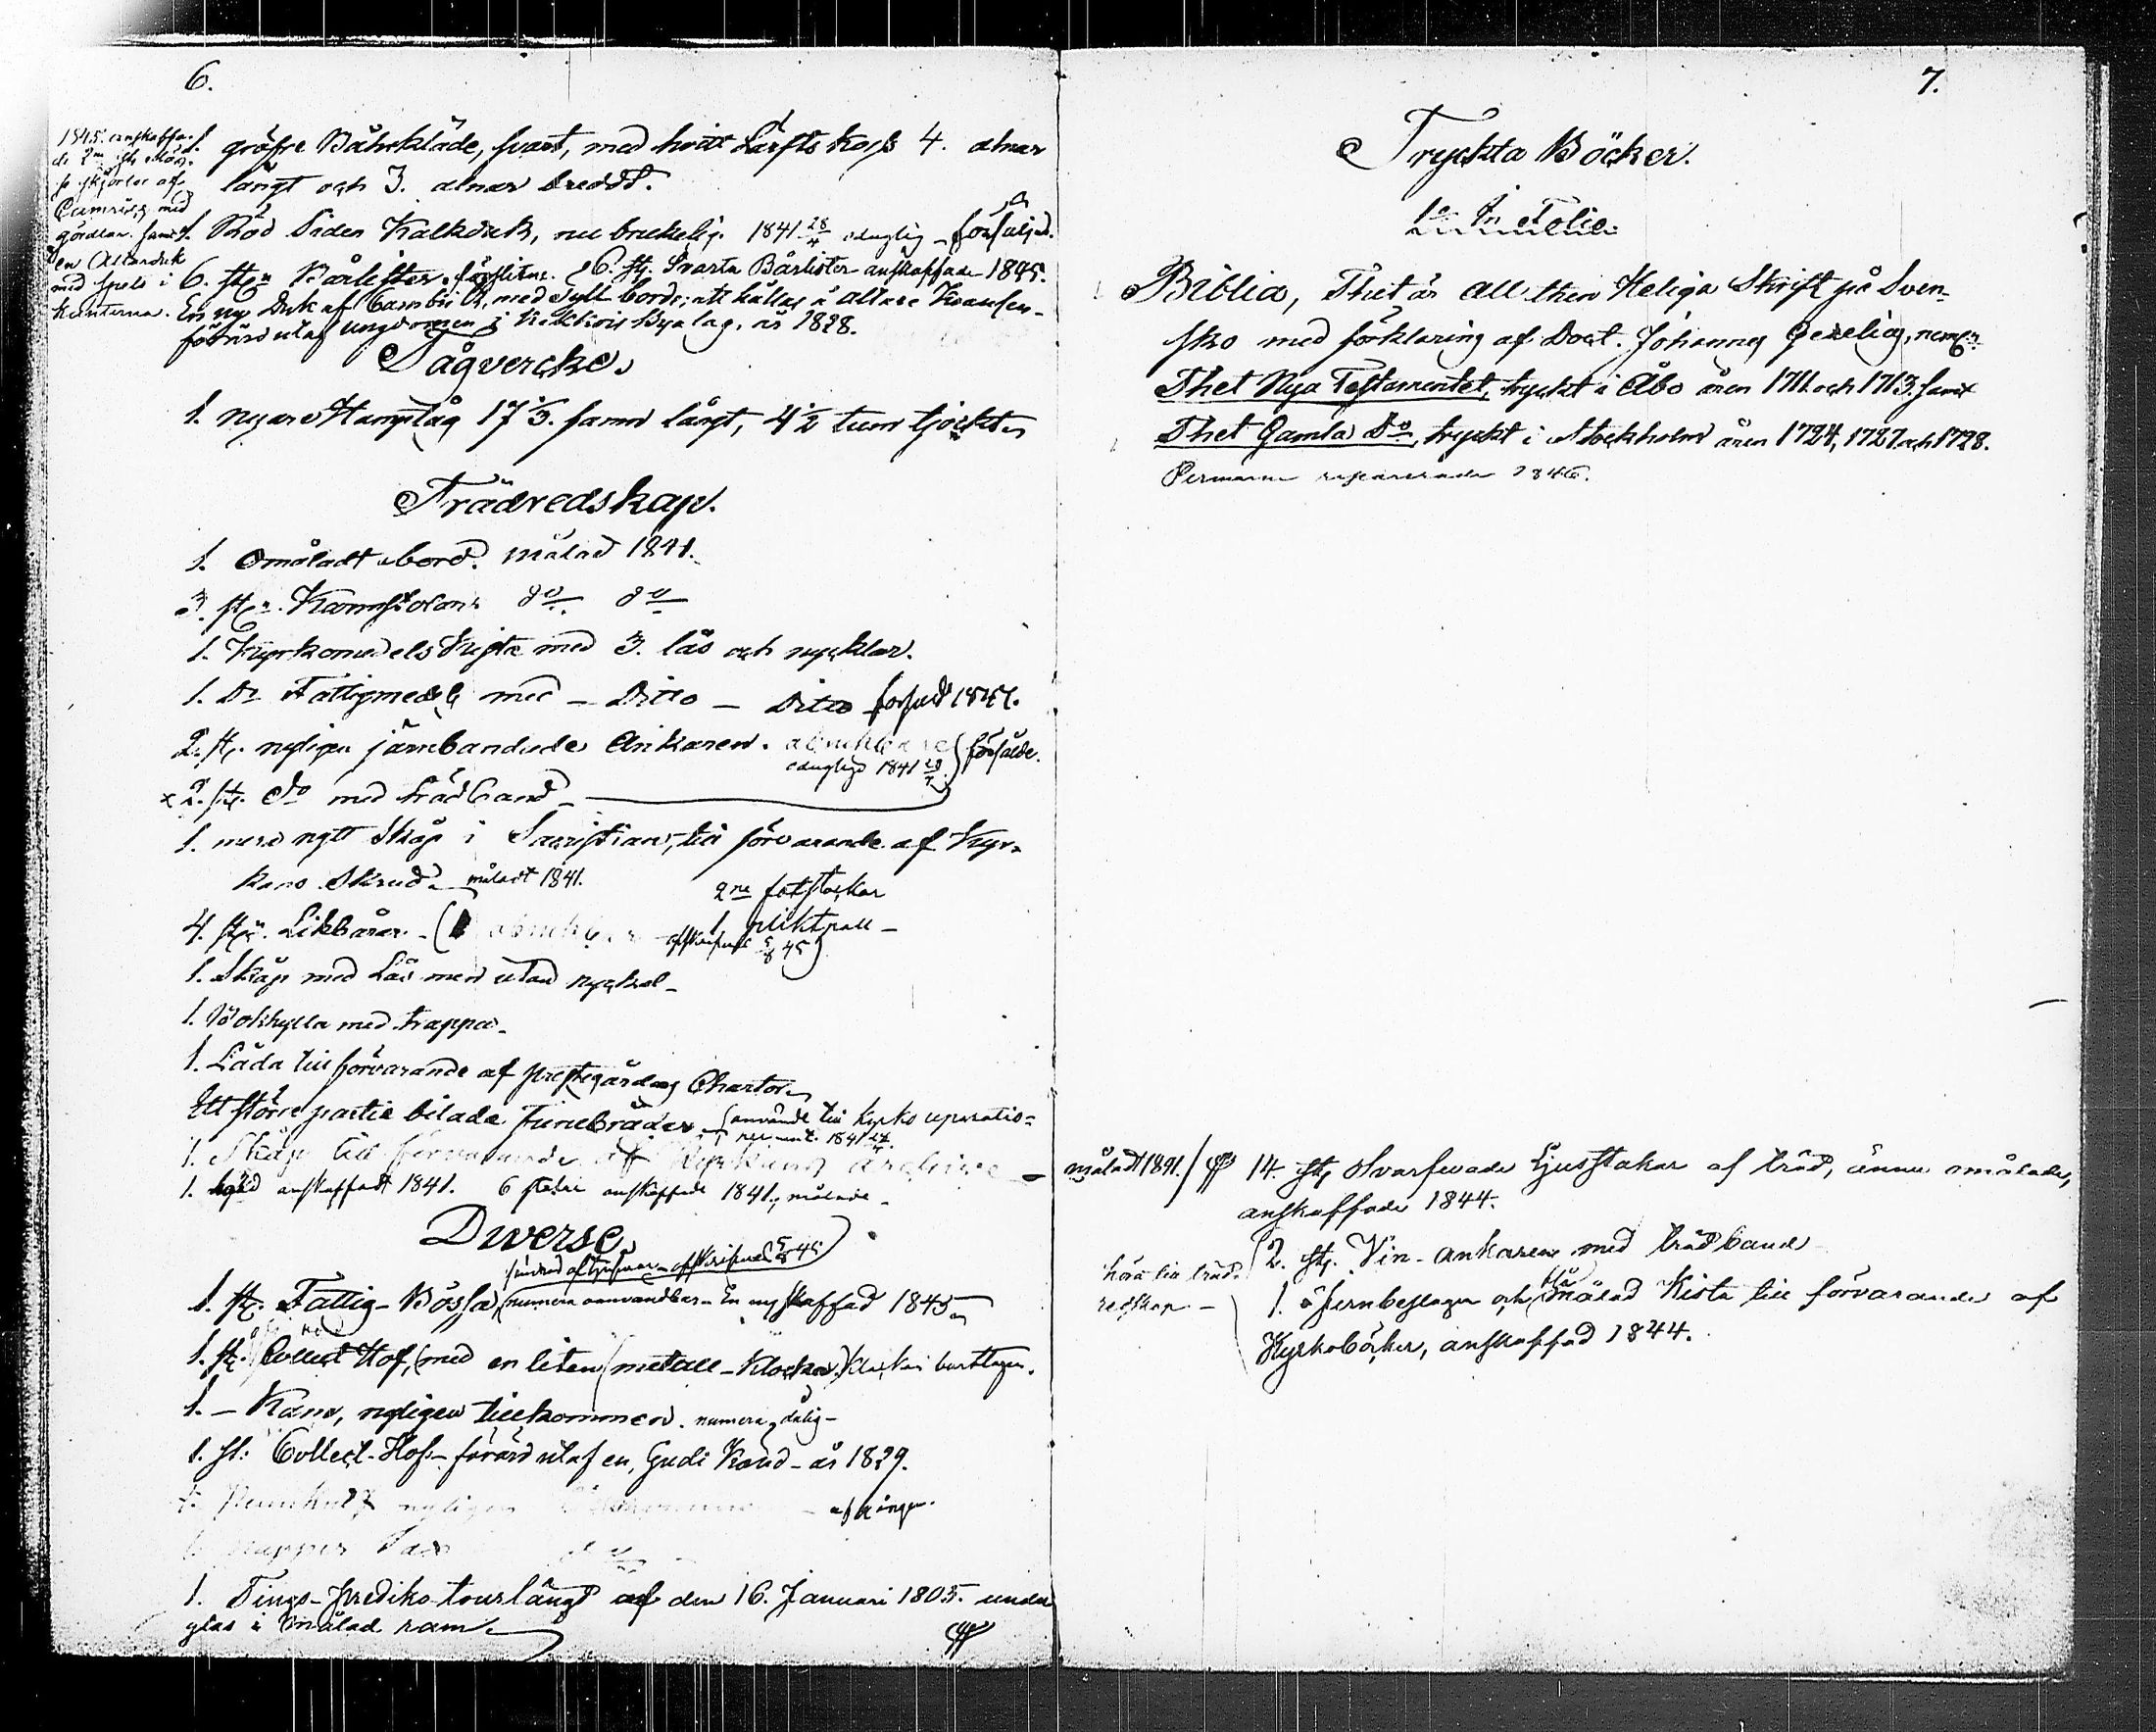 6.
1845 anskaffa-
de 2ne st. Mäs-
se skjortor af
Camrig med
gördlar. samt
en Altarduk
med spets i
kanterna.
1. gröfre Båhrkläde, svart, med hvitt Lärfts Kors 4. alnar
långt och 3. alnar bredt.
1. Röd Siden Kalkduk, nu brukelig. 1841 28/4 oduglig - försåljd.
6. st. Bårlister. förslitne. 6. st. Svarta Bårlister anskaffade 1845.
En ny Duk af Cambrik, med Tyll bord; att hållas å altare Kransen-
förärd utaf ungdomen i Byalag, år 1828.
Tågvercke.
1. nyare Hamptåg 17 1/3. famn långt, 4 1/2 tum tjockt
Trädredskap.
1. Omåladt bord. målad 1841.
3. st. Karmstolar do do
1. Kyrkomedels Kista med 3. lås och nycklar.
1. Do Fattigmedels med - Ditto - Ditto försåld
2. st. nyligen järnbandade Ankaren. obrukbare försålde.
odugliga 1841 28/4
x 2. st. do med trädband
1. mera nytt Skåp i Sacristian, till förvarande af Kyr-
kans Skrud. måladt 1841.
2ne fotstockar
1 pliktpall -
4. st. Likbårar - (1 obrukbar afskrifves 5/8 45)
1. Skåp med Lås men utan nyckel -
1. Bokhylla med trappa -
1. Låda till förvarande af prestegårdens Chartor
Ett större partie bilade Furubräder - (använde till Kyrko reparatio-
nen 1841
1. Skåp till förvarande af Kyrkans archive -
1. anskaffadt 1841. 6 stolar anskaffade 1841, målade -
Diverse
afskrifves 5/8 45)
1. st. Fattig-Bössa, (numera oanvändbar - En ny skaffad 1845
1. st. Collect Hof, (med en liten (metall - Klocka) Klockan borttagen.
1. - Kana, nyligen tillkommen. numera dålig -
1. st: Collect-Hof - förärd utaf en, Gudi Känd - år 1829.
nyligen - afgången.
1. Tings-predikotourlängd af den 16. Januari 1805. under
glas i målad ram
7.
Tryckta Böcker.
1o In Folio.
Biblia, Thet är All then Heliga Skrift på Sven-
sko med förklaring af Doct. Johannes Gezelius, neml.
Thet Nya Testamentet, tryckt i Åbo åren 1711 och 1713. samt
Thet Gamla Do, tryckt i Stockholm åren 1724, 1727 och 1728.
Permarne reparerade 1846.
målad 1891. / 14. st. Svarfvade Ljusstakar af träd, ännu omålade,
anskaffade 1844.
höra till träd-
redskap -
2. st. Vin-ankaren med trädband
1. Jernbeslagen och blå målad Kista till förvarande af
Kyrkoböcker, anskaffad 1844.